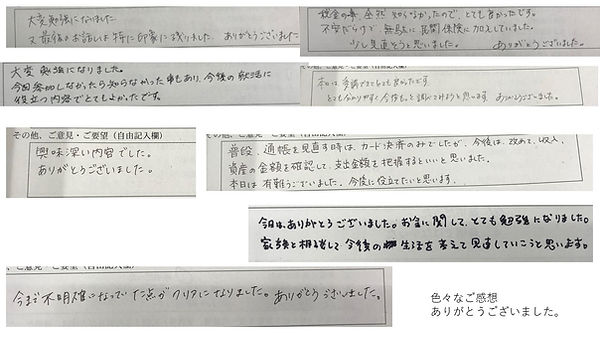 大変勉強になりました。
又最後のお話しは特に印象に残りました。ありがとうございました
税金の事、全然知らなかったので、とてもよかったです。
不安だらけで、無駄に民間保険に加入していました。
少し見直そうと思いました。 ありがとうございました。
大変勉強になりました。
今回参加しなかったら知らなかった事もあり、今後の就活に
役立つ内容でとてもよかったです。
本日は受講できてとても良かったです。
とても分かりやすく今後もっと調べてみようと思います。ありがとうございました。
その他、ご意見・ご要望（自由記入欄）
興味深い内容でした。
ありがとうございました。
その他、ご意見・ご要望（自由記入欄）
普段、通帳を見直す時は、カード決済のみでしたが、今後は、改めて、収入、
資産の金額を確認して、支出金額を把握するといいと思いました。
本日は有難うございました。今後に役立てたいと思います。
今日は、ありがとうございました。お金に関して、とても勉強になりました。
家族と相談して今後の生活を考えて見直していこうと思います。
、ご意見・ご要望（自由記入欄）
今まで不明確になっていた点がクリアになりました。ありがとうございました。
色々なご感想
ありがとうございました。